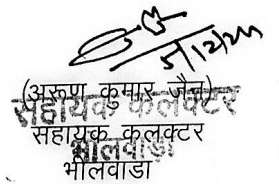 (अरूण कुमार जैन)
सहायक कलक्टर
सहायक कलक्टर
भीलवाडा
भीलवाडा